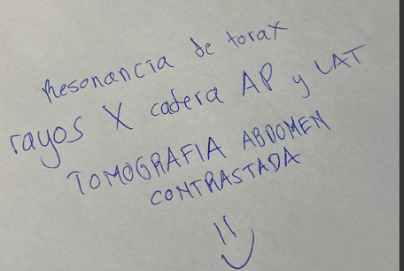 Resonancia de torax
rayos X cadera AP y LAT
TOMOGRAFIA ABDOMEN
CONTRASTADA